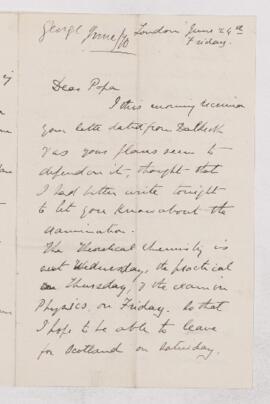 George June/70
London June 24th
Friday.
Dear Papa
I this morning received
your letter dated from
& as your plans seem to
depend on it, thought that
I had better write tonight
to let you know about the
examination.
The theoretical chemistry is
next Wednesday, the practical
on Thursday, & the exam in
Physics on Friday. So that
I hope to be able to leave
for Scotland on Saturday.